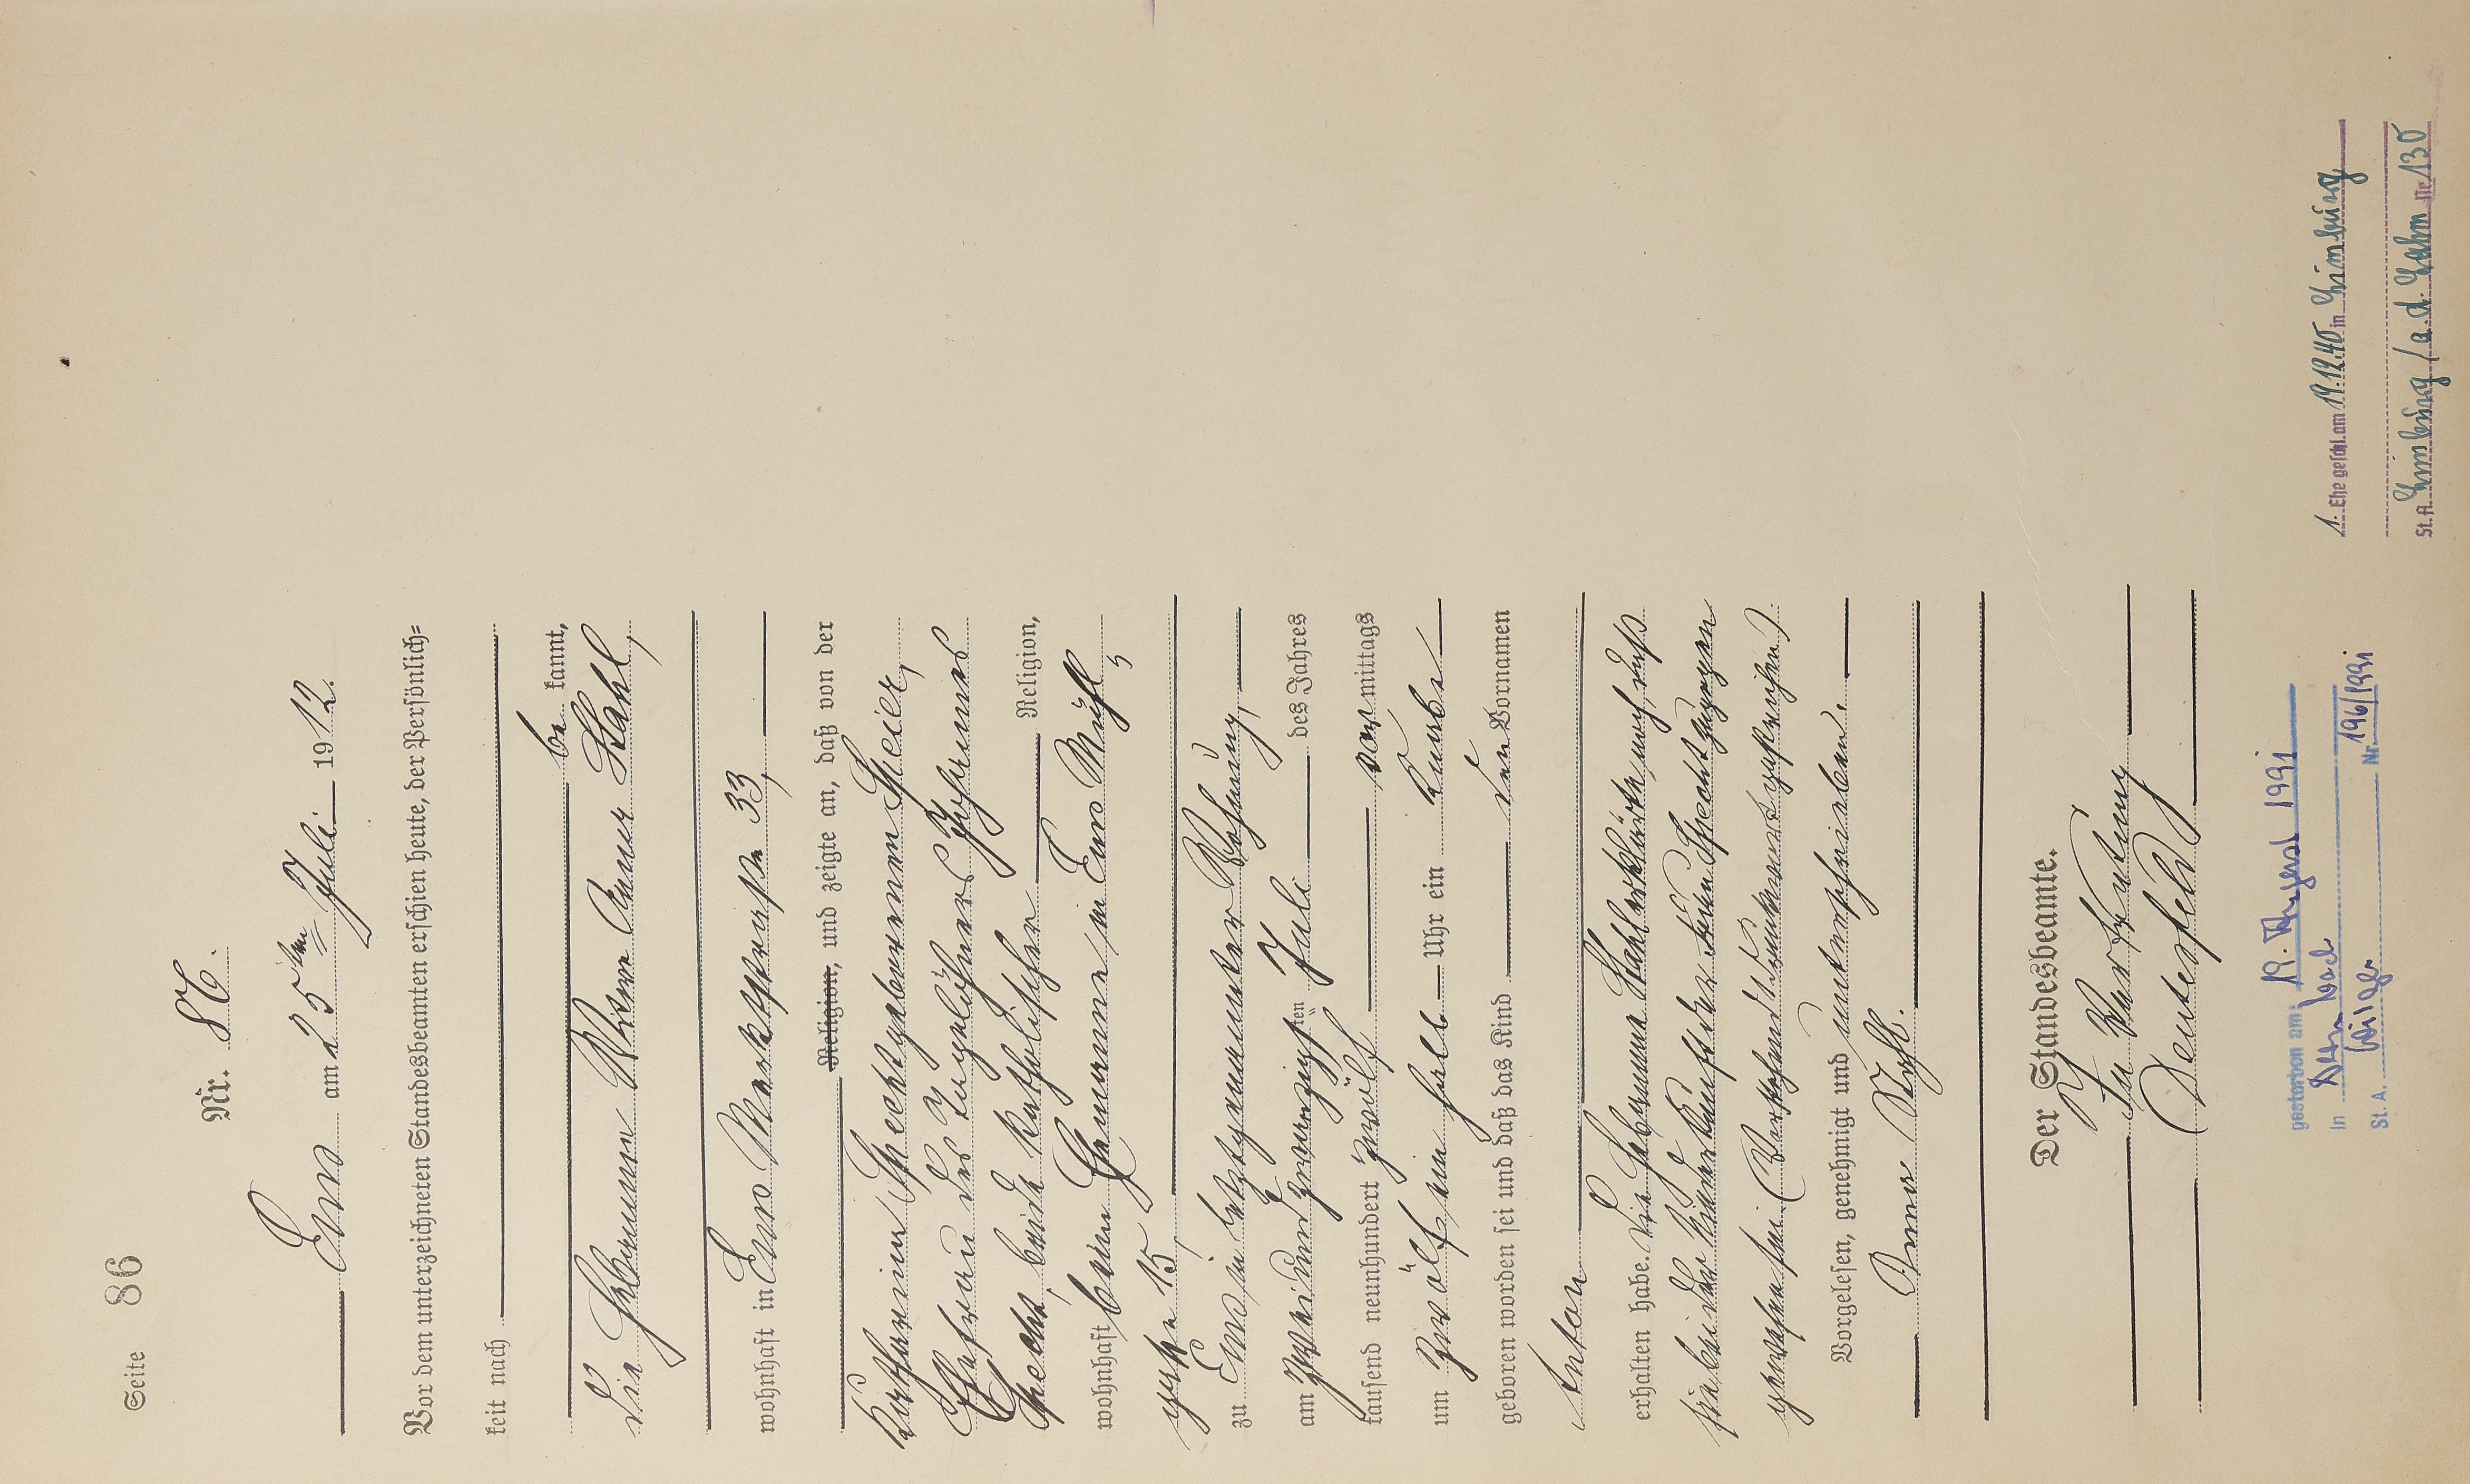 Seite 86
Nr. 86.
Ems am 25ten Juli 1912.
Vor dem unterzeichneten Standesbeamten erschien heute, der Persönlich=
keit nach
be kannt,
die Hebamme Witwe Anna Stahl,
wohnhaft in Ems Marktstraße 33,
Religion, und zeigte an, daß von der
Katharina Specht geborenen Speier,
Ehefrau des Taglöhners Johannes
Specht, beide katholischer Religion,
wohnhaft beim Ehemanne in Ems Mühl
gasse 15,
zu Ems, in letztgenannter Wohnung,
am zweiundzwanzigsten Juli des Jahres
tausend neunhundert zwölf vormittags
um zwölf ein halb Uhr ein Knabe
geboren worden sei und daß das Kind den Vornamen
Anton
erhalten habe. Die Hebamme Stahl erklärte noch, daß
sie bei der Niederkunft der Frau Specht zugegen
gewesen sei. (Vorstehend Druckworte gestrichen).
Vorgelesen, genehmigt und unterschrieben.
Anna Stahl.
Der Standesbeamte.
In Vertretung
gestorben am: 19. August 1991
in Dernbach
St. A. Wirges Nr. 196/1991
1. Ehe geschl. am 19.12.40 in Limburg
St. A. Limburg /a.d. Lahn Nr. 130